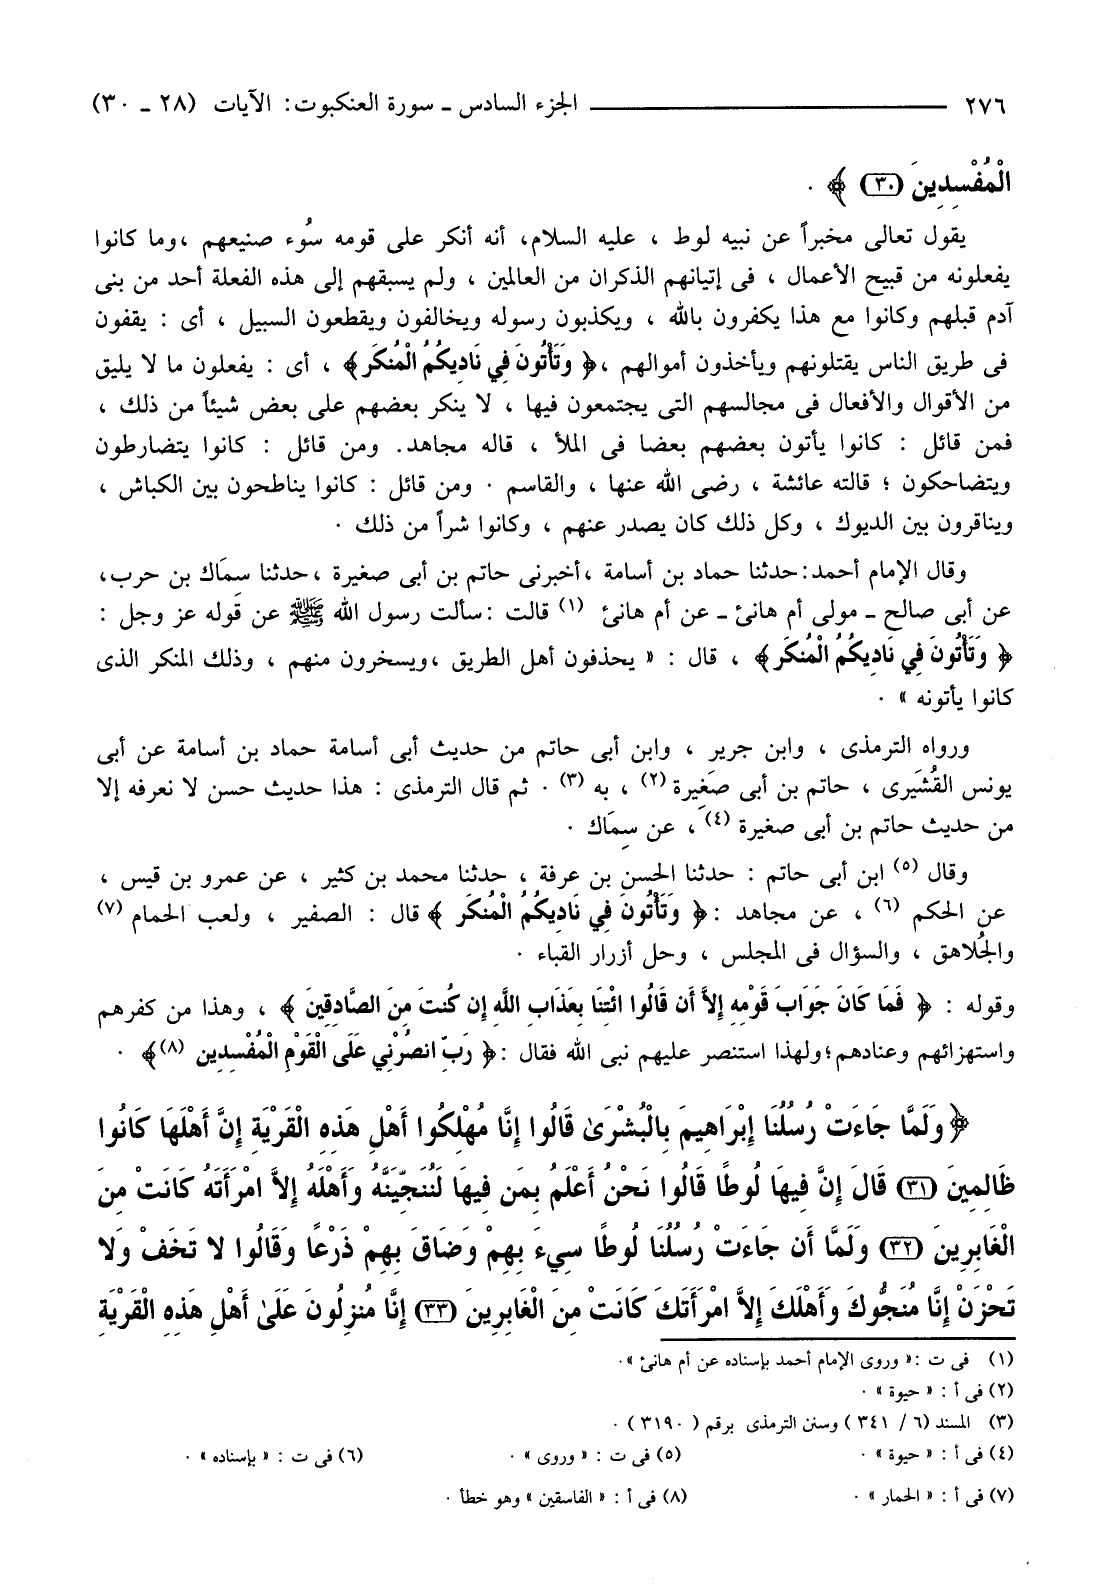 ٢٧٦ ــــــــــــ الجزء السادس ـ سورة العنكبوت: الآيات (٢٨ ـ ٣٠)
الْمُفْسِدِينَ (٣٠) ﴾ .
يقول تعالى مخبراً عن نبيه لوط ، عليه السلام، أنه أنكر على قومه سُوء صنيعهم ،وما كانوا
يفعلونه من قبيح الأعمال ، فى إتيانهم الذكران من العالمين ، ولم يسبقهم إلى هذه الفعلة أحد من بنى
آدم قبلهم وكانوا مع هذا يكفرون بالله ، ويكذبون رسوله ويخالفون ويقطعون السبيل ، أى : يقفون
فى طريق الناس يقتلونهم ويأخذون أموالهم ،﴿ وَتَأْتُونَ فِي نَادِيكُمُ الْمُنكَر﴾ ، أى : يفعلون ما لا يليق
من الأقوال والأفعال فى مجالسهم التى يجتمعون فيها ، لا ينكر بعضهم على بعض شيئاً من ذلك ،
فمن قائل : كانوا يأتون بعضهم بعضا فى الملأ ، قاله مجاهد. ومن قائل : كانوا يتضارطون
ويتضاحكون ؛ قالته عائشة ، رضى الله عنها ، والقاسم . ومن قائل : كانوا يناطحون بين الكباش ،
ويناقرون بين الديوك ، وكل ذلك كان يصدر عنهم ، وكانوا شراً من ذلك .
وقال الإمام أحمد: حدثنا حماد بن أسامة ،أخبرنى حاتم بن أبى صغيرة ،حدثنا سمَاك بن حرب،
عن أبى صالح ـ مولى أم هانئ ـ عن أم هانئ (١) قالت :سألت رسول الله ﷺ عن قَوله عز وجل :
﴿ وَتَأْتُونَ فِي نَادِيكُمُ الْمُنكَرَ﴾ ، قال : « يحذفون أهل الطريق ،ويسخرون منهم ، وذلك المنكر الذى
كانوا يأتونه » .
ورواه الترمذى ، وابن جرير ، وابن أبى حاتم من حديث أبى أسامة حماد بن أسامة عن أبى
يونس القُشَيرى ، حاتم بن أبى صَغِيرة (٢) ، به (٣) . ثم قال الترمذى : هذا حديث حسن لا نعرفه إلا
من حديث حاتم بن أبى صغيرة (٤) ، عن سِمَاك .
وقال (٥) ابن أبى حاتم : حدثنا الحسن بن عرفة ، حدثنا محمد بن كثير ، عن عمرو بن قيس ،
عن الحكم (٦) ، عن مجاهد :﴿ وَتَأْتُونَ فِي نَادِيكُمُ الْمُنكَر ﴾ قال : الصفير ، ولعب الحمام (٧)
والجُلاهق ، والسؤال فى المجلس ، وحل أزرار القباء .
وقوله : ﴿ فَمَا كَانَ جَوَابَ قَوْمِهِ إِلاَّ أَن قَالُوا ائْتِنَا بِعَذَابِ اللَّهِ إِن كُنتَ مِنَ الصَّادِقِينَ ﴾ ، وهذا من كفرهم
واستهزائهم وعنادهم؛ولهذا استنصر عليهم نبى الله فقال :﴿ رَبِّ انصُرْنِي عَلَى الْقَوْمِ الْمُفْسِدِين (٨)﴾ .
﴿ وَلَمَّا جَاءَتْ رُسُلُنَا إِبْرَاهِيمَ بِالْبُشْرَىٰ قَالُوا إِنَّا مُهْلِكُوا أَهْلِ هَذِهِ الْقَرْيَةِ إِنَّ أَهْلَهَا كَانُوا
ظَالِمِينَ (٣١) قَالَ إِنَّ فِيهَا لُوطًا قَالُوا نَحْنُ أَعْلَمُ بِمَن فِيهَا لَنُنَجِّيَنَّهُ وَأَهْلَهُ إِلاَّ امْرَأَتَهُ كَانَتْ مِنَ
الْغَابِرِينَ (٣٢) وَلَمَّا أَن جَاءَتْ رُسُلُنَا لُوطًا سِيءَ بِهِمْ وَضَاقَ بِهِمْ ذَرْعًا وَقَالُوا لا تَخَفْ وَلا
تَحْزَنْ إِنَّا مُنَجُّوكَ وَأَهْلَكَ إِلاَّ امْرَأَتَكَ كَانَتْ مِنَ الْغَابِرِينَ (٣٣) إِنَّا مُنزِلُونَ عَلَىٰ أَهْلِ هَذِهِ الْقَرْيَةِ
(١) فى ت :« وروى الإمام أحمد بإسناده عن أم هانئ ».
(٢) فى أ : « حيوة » .
(٣) المسند (٦ / ٣٤١ ) وسنن الترمذى برقم ( ٣١٩٠ ) .
(٤) فى أ : « حيوة » . (٥) فى ت : « وروى » . (٦) فى ت : « بإسناده » .
(٧) فى أ : « الحمار » . (٨) فى أ : « الفاسقين » وهو خطأ .